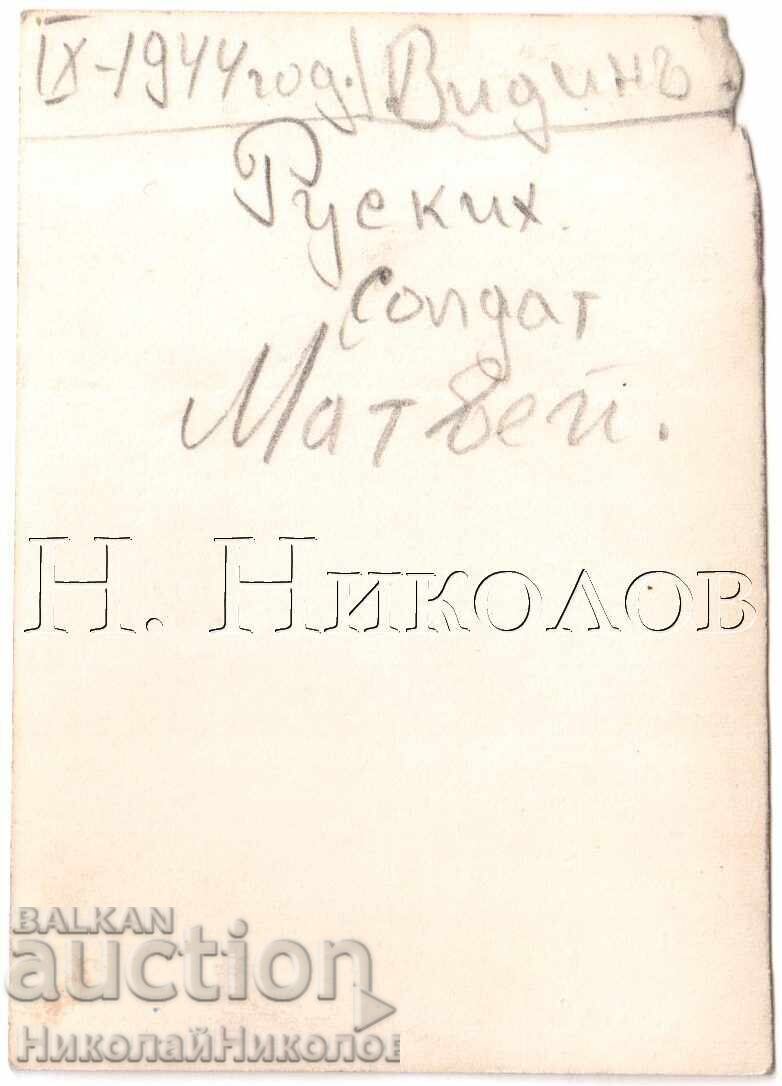 IX-1944 год./Видинъ.
Руских
солдат
Матвей.
Н. Николов
BALKAN
auction
НиколайНиколов